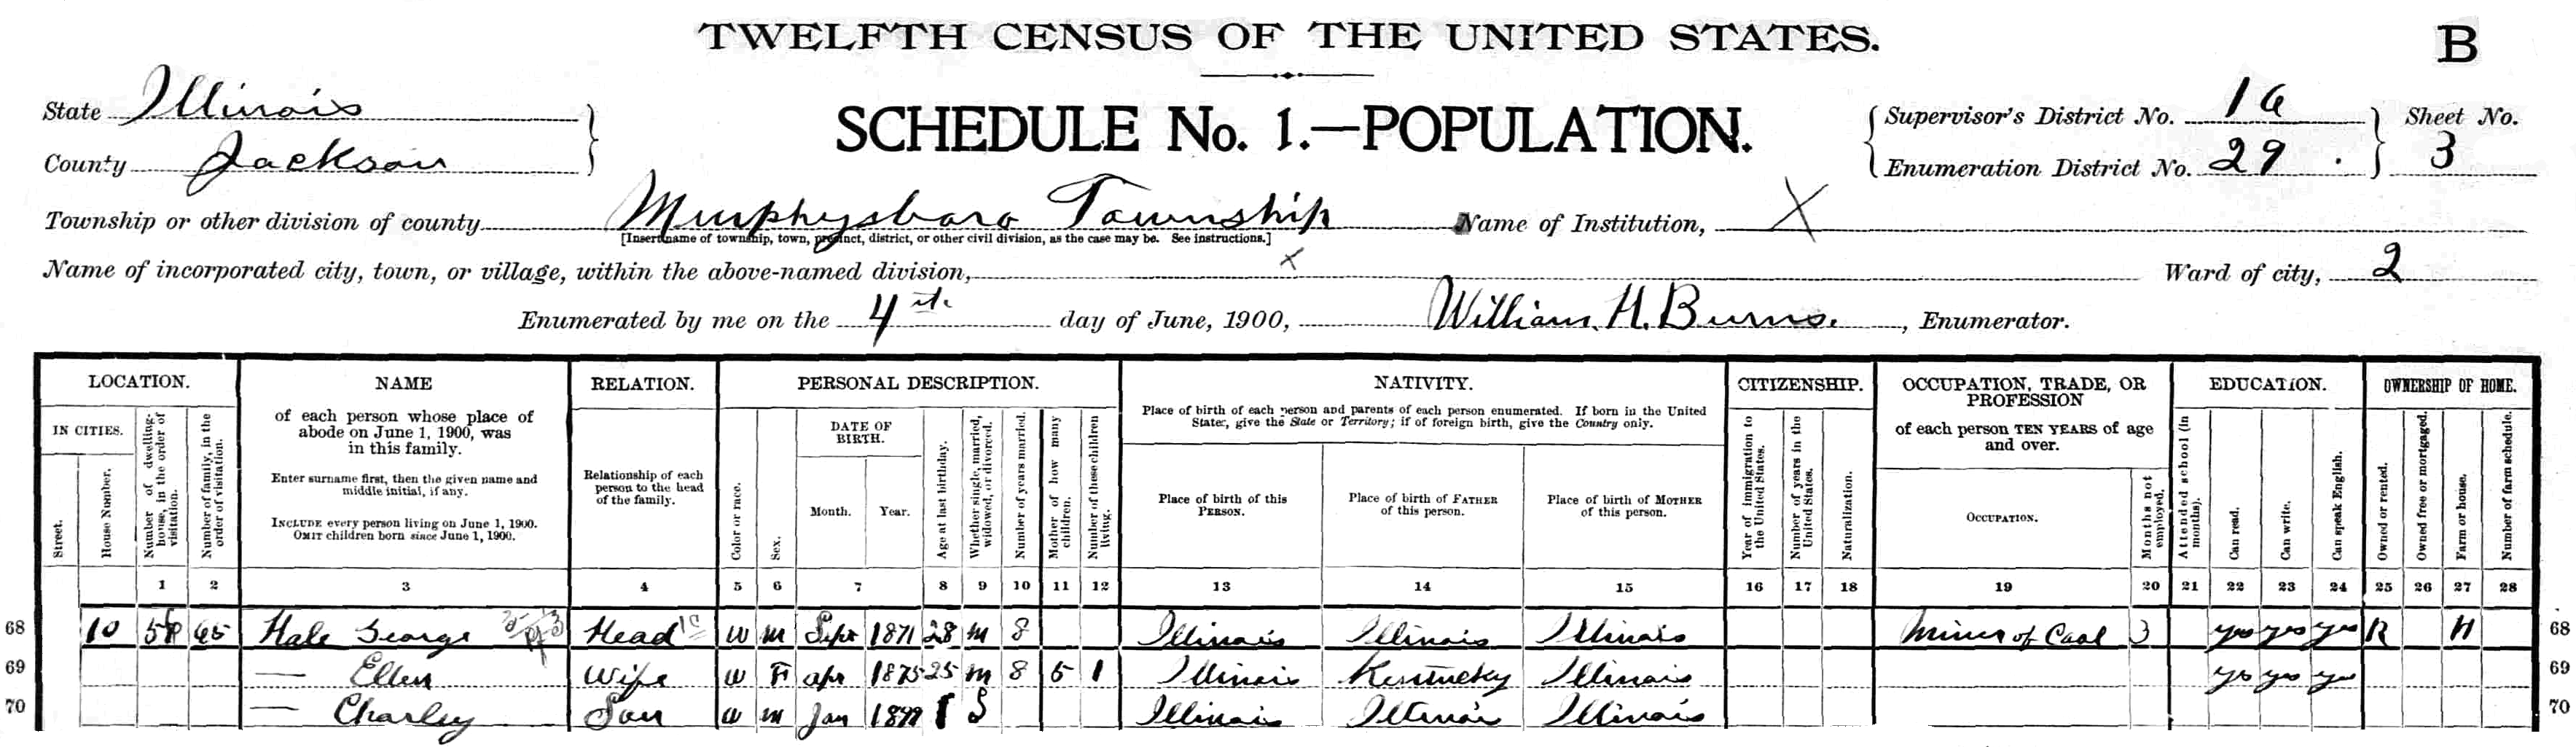 TWELFTH CENSUS OF THE UNITED STATES.
B
State Illinois
County Jackson
SCHEDULE No. 1.—POPULATION.
Supervisor's District No. 16
Enumeration District No. 29
Sheet No.
3
Township or other division of county Murphysboro Township
[Insert name of township, town, precinct, district, or other civil division, as the case may be. See instructions.]
Name of Institution, X
Name of incorporated city, town, or village, within the above-named division, x
Ward of city, 2
Enumerated by me on the 4th day of June, 1900, William H. Burns, Enumerator.
LOCATION.
IN CITIES.
Street.
House Number.
Number of dwelling-house, in the order of visitation.
Number of family, in the order of visitation.
NAME
of each person whose place of
abode on June 1, 1900, was
in this family.
Enter surname first, then the given name and
middle initial, if any.
INCLUDE every person living on June 1, 1900.
OMIT children born since June 1, 1900.
RELATION.
Relationship of each
person to the head
of the family.
PERSONAL DESCRIPTION.
Color or race.
Sex.
DATE OF
BIRTH.
Month.
Year.
Age at last birthday.
Whether single, married, widowed, or divorced.
Number of years married.
Mother of how many children.
Number of these children living.
NATIVITY.
Place of birth of each person and parents of each person enumerated. If born in the United
States, give the State or Territory; if of foreign birth, give the Country only.
Place of birth of this
PERSON.
Place of birth of FATHER
of this person.
Place of birth of MOTHER
of this person.
CITIZENSHIP.
Year of immigration to the United States.
Number of years in the United States.
Naturalization.
OCCUPATION, TRADE, OR
PROFESSION
of each person TEN YEARS of age
and over.
OCCUPATION.
Months not employed.
EDUCATION.
Attended school (in months).
Can read.
Can write.
Can speak English.
OWNERSHIP OF HOME.
Owned or rented.
Owned free or mortgaged.
Farm or house.
Number of farm schedule.
1 2 3 4 5 6 7 8 9 10 11 12 13 14 15 16 17 18 19 20 21 22 23 24 25 26 27 28
68 10 58 65 Hale George Head W M Sept 1871 28 M 8 Illinois Illinois Illinois Miner of Coal 3 yes yes yes R H 68
69 — Ellen Wife W F Apr 1875 25 M 8 5 1 Illinois Kentucky Illinois yes yes yes 69
70 — Charley Son W M Jan 1899 1 S Illinois Illinois Illinois 70